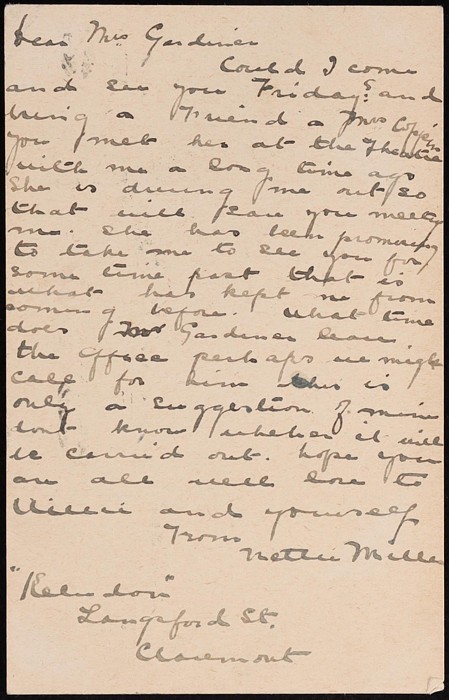 Dear Mrs Gardiner
Could I come
and see you Friday? and
bring a Friend a Mrs Coffin
you met her at the Theatre
with me a long time ago
She is driving me out so
that will save you meeting
me. She has been promising
to take me to see you for
some time past that is
what has kept me from
coming before. What time
does Mr Gardiner leave
the Office perhaps we might
call for him this is
only a suggestion of mine
dont know whether it will
be carried out. hope you
are all well love to
Willie and yourself
From
Nettie Miller
"Kelvdon"
Langsford St.
Claremont